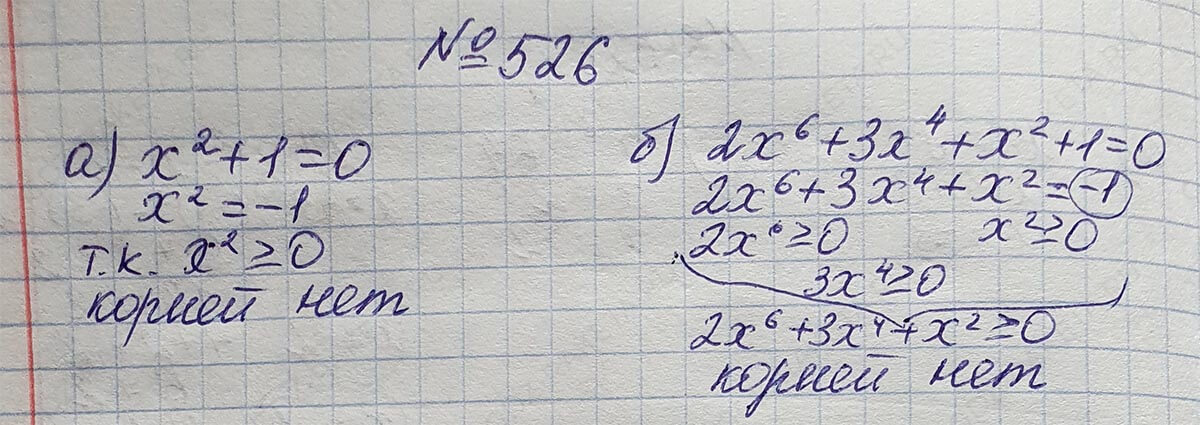 №526
а) x²+1=0
x²=-1
т.к. x²≥0
корней нет
б) 2x⁶+3x⁴+x²+1=0
2x⁶+3x⁴+x²=-1
2x⁶≥0 x²≥0
3x⁴≥0
2x⁶+3x⁴+x²≥0
корней нет